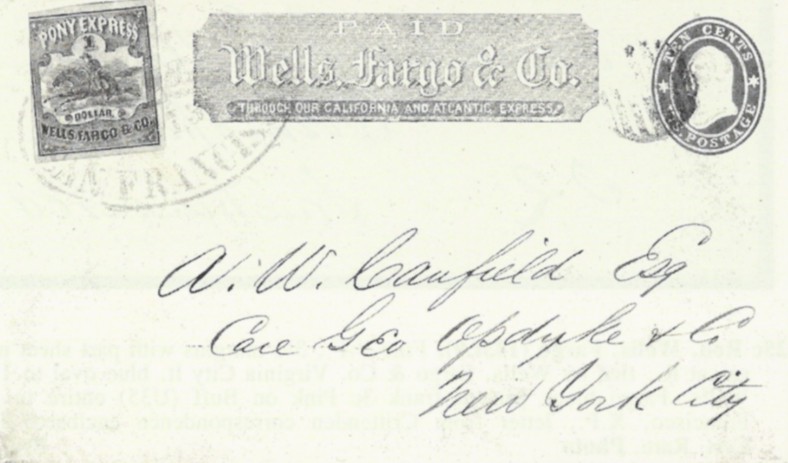 PONY EXPRESS
1
DOLLAR
WELLS, FARGO & CO.
SAN FRANCIS
PAID
Wells, Fargo & Co.
THROUGH OUR CALIFORNIA AND ATLANTIC EXPRESS.
TEN CENTS
U.S. POSTAGE
N. W. Canfield Esq
Care Geo Opdyke & Co.
New York City